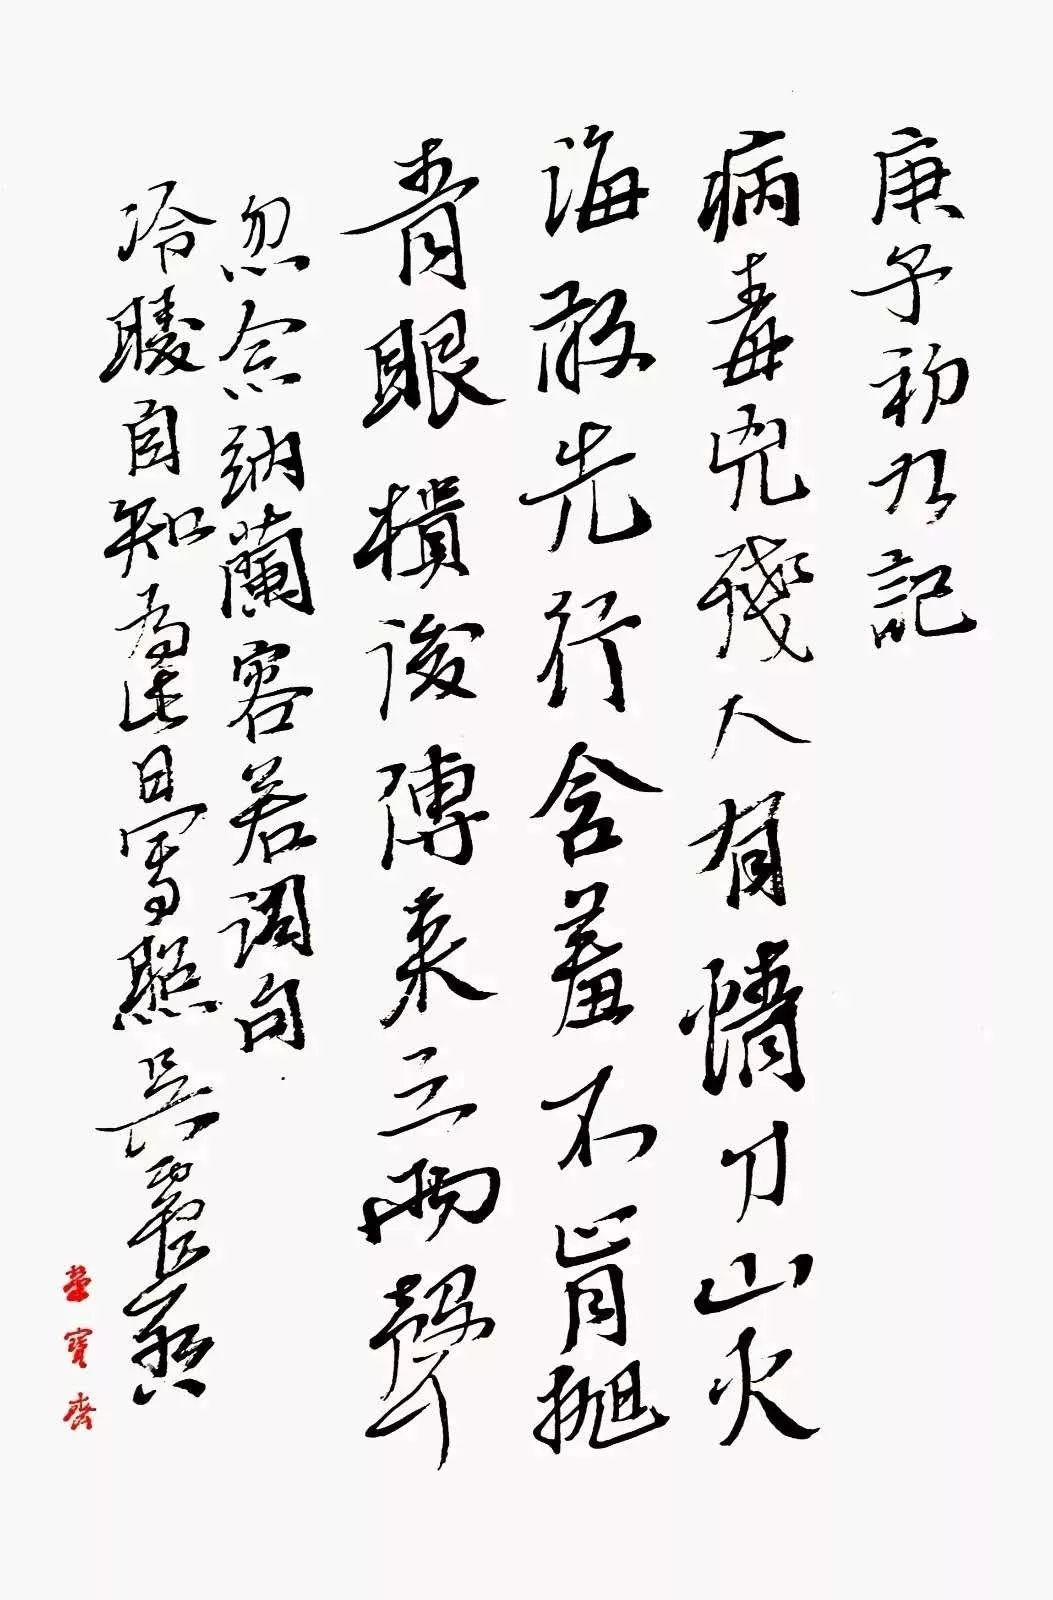 庚子初九記
病毒兇殘人有情刀山火
海敢先行含羞不肯拋
青眼後傳来三兩聲
忽念納蘭容若詞句
冷暖自知為此日寫照吴震啟
榮寶齋